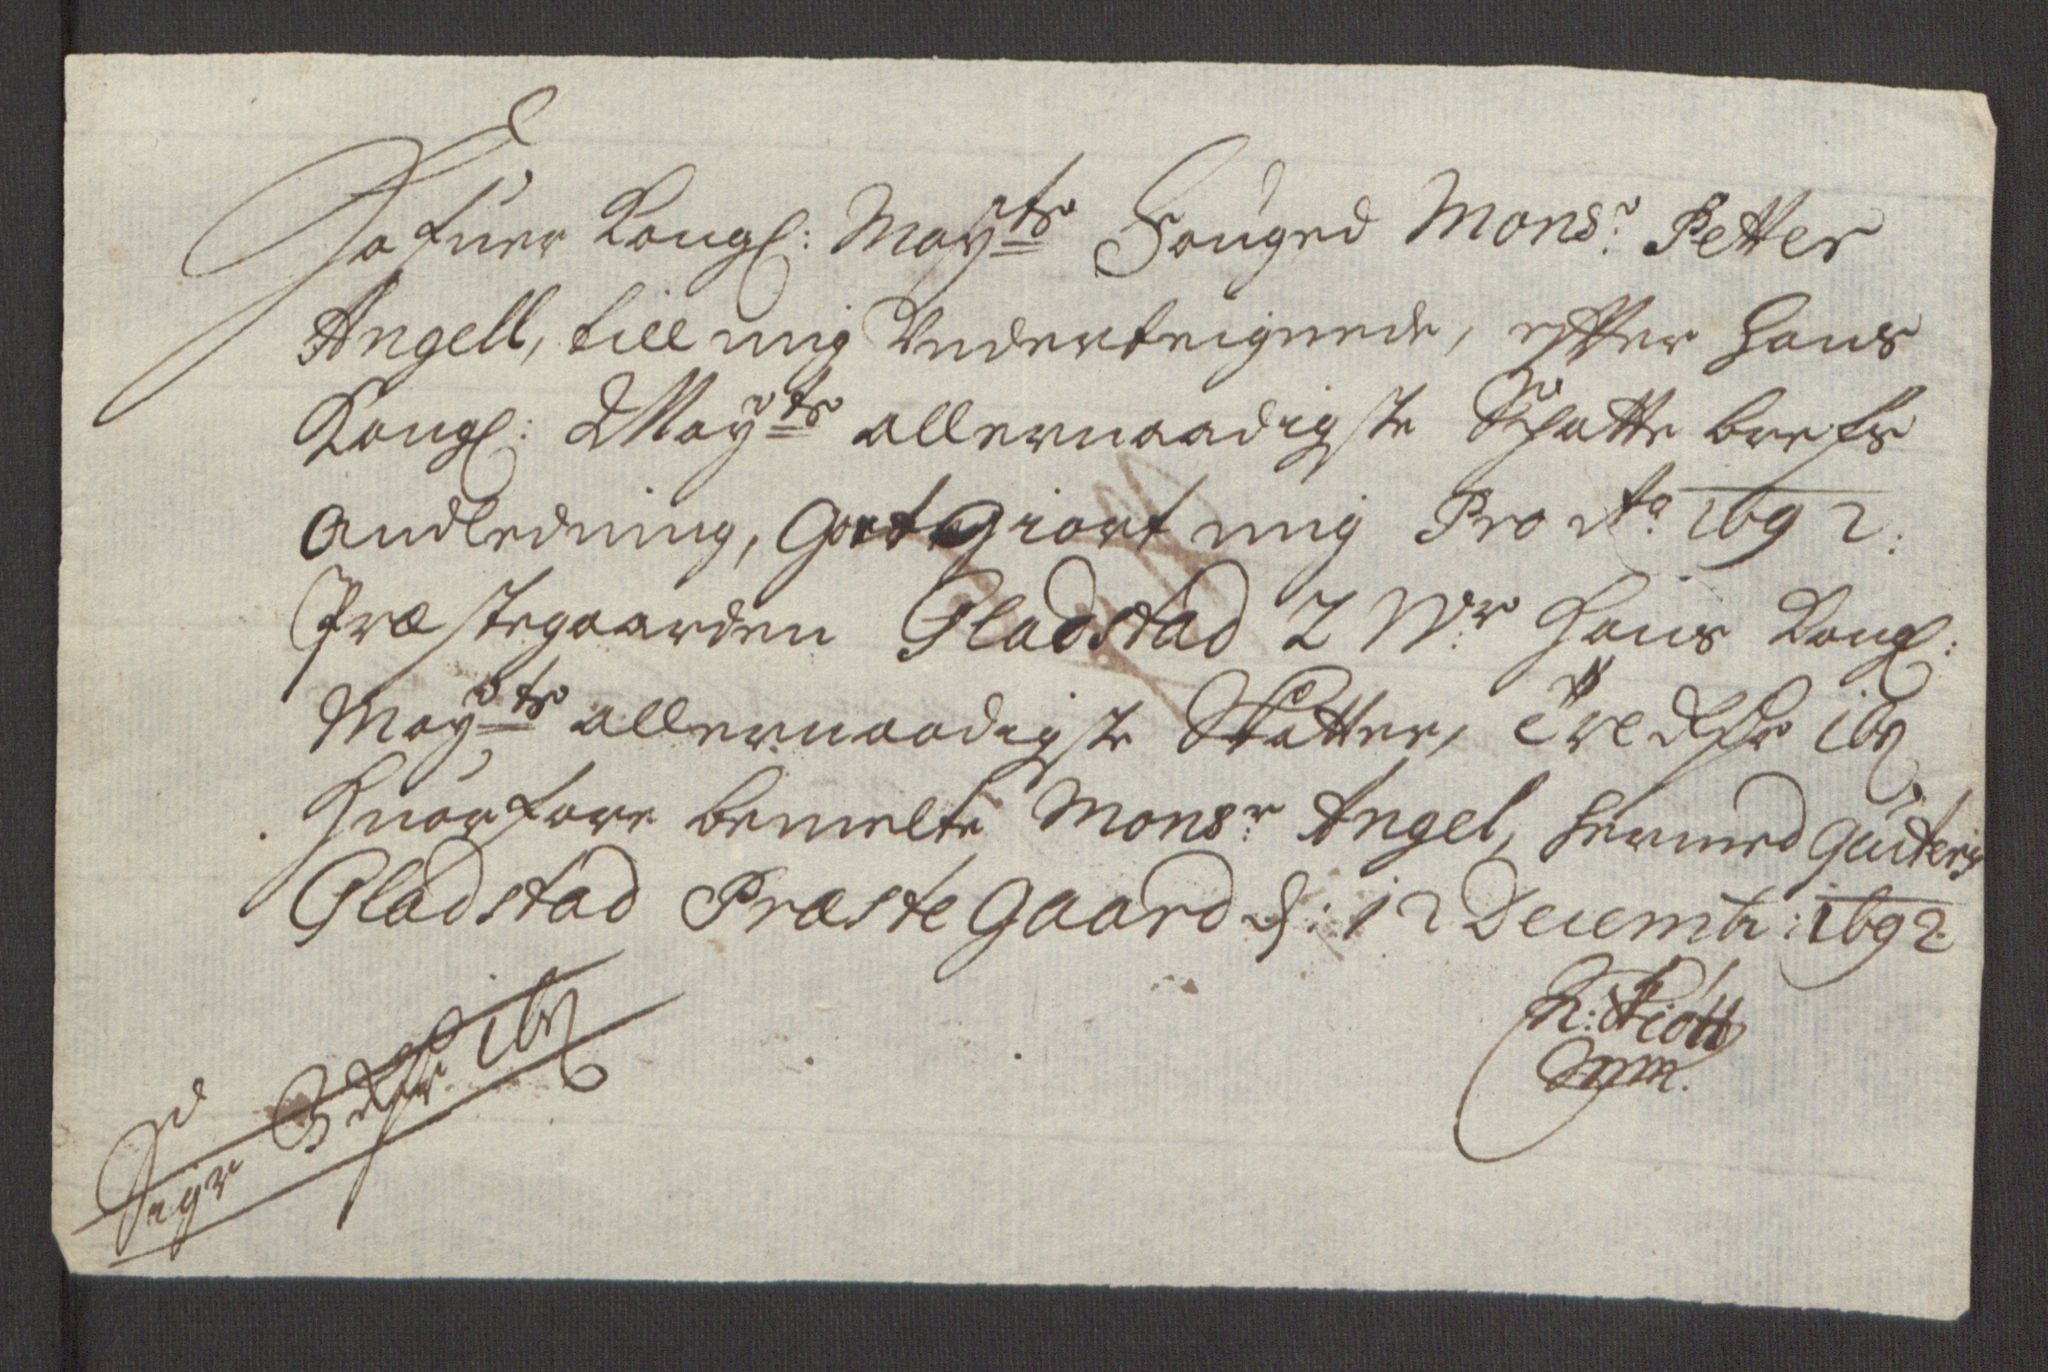 Hafuer Kongl: Mayts Fouged Monsr: Petter
Angell, till mig Underteignede, effter Hans
Kongl: Mayts allernaadigste Schatte brefs
Andledning, Godtgiort mig Pro Ao 1692:
Præstegaarden Gladstad 2 Wr Hans Kongl:
Mayts allernaadigste Skatter, Tre Rdr
Huorfore bemelte Monsr Angel, hermed Quiteris
Gladstad Præste Gaard d: 12 Decembr: 1692
Skiött
3 Rdr